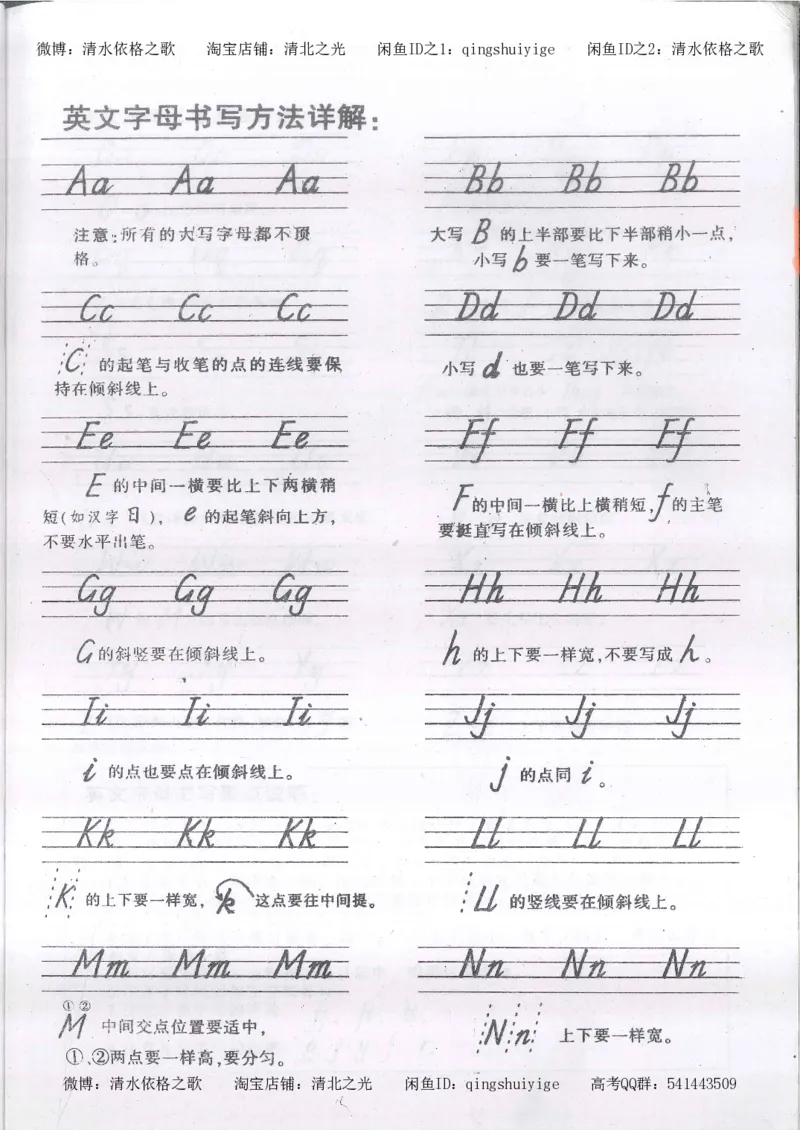 微博：清水依格之歌 淘宝店铺：清北之光 闲鱼ID之1：qingshuiyige 闲鱼ID之2：清水依格之歌
英文字母书写方法详解：
Aa Aa Aa
注意：所有的大写字母都不顶
格。
Bb Bb Bb
大写 B 的上半部要比下半部稍小一点，
小写 b 要一笔写下来。
Cc Cc Cc
C 的起笔与收笔的点的连线要保
持在倾斜线上。
Dd Dd Dd
小写 d 也要一笔写下来。
Ee Ee Ee
E 的中间一横要比上下两横稍
短(如汉字日)，e 的起笔斜向上方，
不要水平出笔。
Ff Ff Ff
F 的中间一横比上横稍短，f 的主笔
要挺直写在倾斜线上。
Gg Gg Gg
G 的斜竖要在倾斜线上。
Hh Hh Hh
h 的上下要一样宽，不要写成 h 。
Ii Ii Ii
i 的点也要点在倾斜线上。
Jj Jj Jj
j 的点同 i 。
Kk Kk Kk
K 的上下要一样宽，k 这点要往中间提。
Ll Ll Ll
Ll 的竖线要在倾斜线上。
Mm Mm Mm
①②
M 中间交点位置要适中，
①、②两点要一样高，要分匀。
Nn Nn Nn
Nn 上下要一样宽。
微博：清水依格之歌 淘宝店铺：清北之光 闲鱼ID：qingshuiyige 高考QQ群：541443509